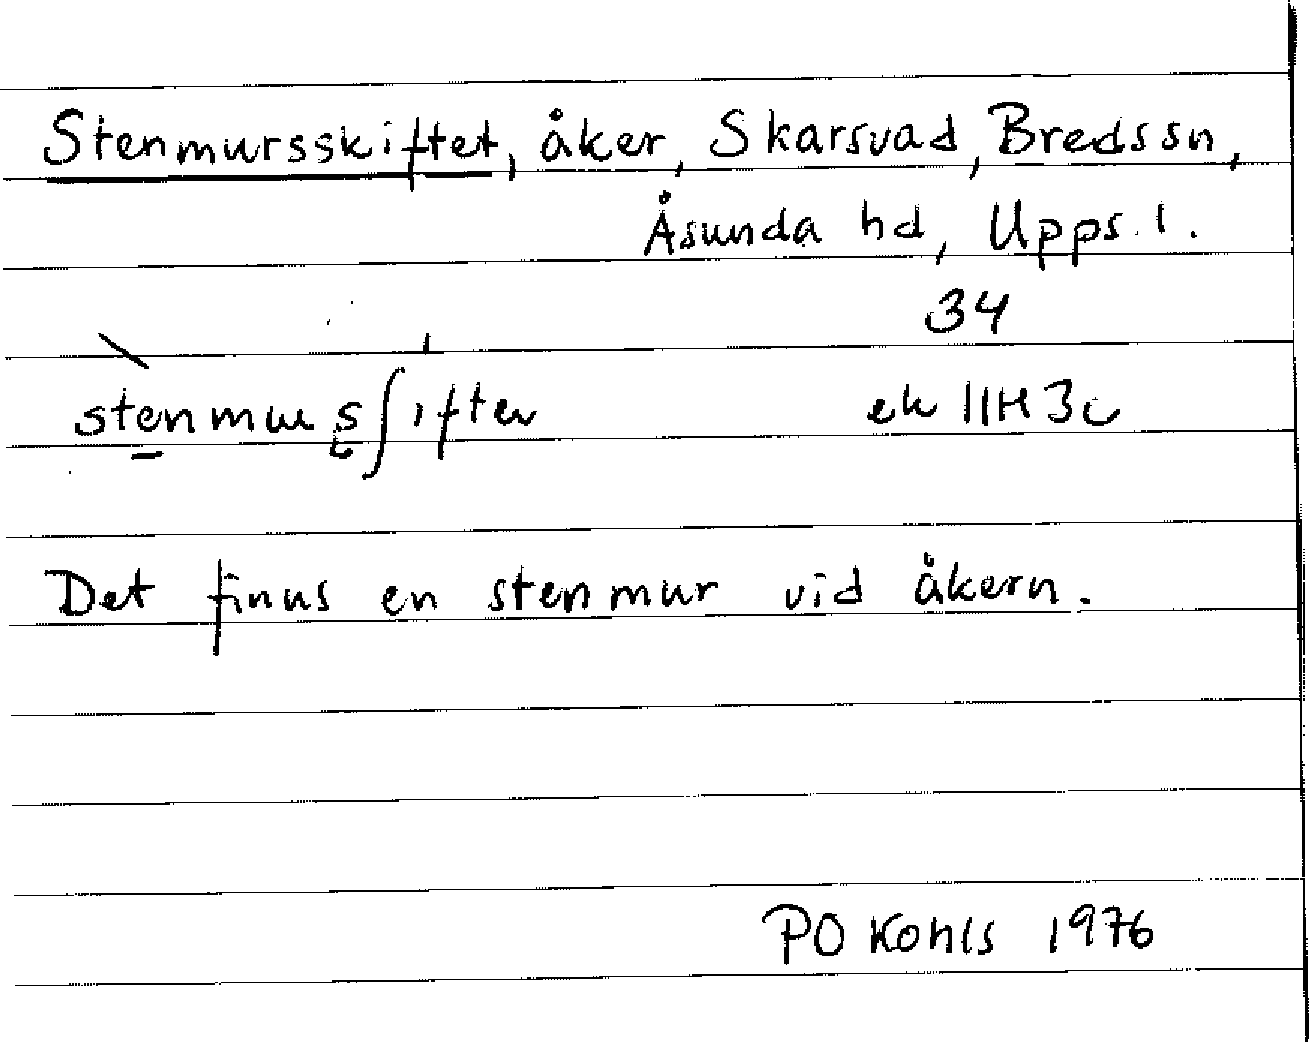 Stenmursskiftet, åker, Skarsvad, Breds sn,
Åsunda hd, Upps. l.
34
ek 11H 3c
Det finns en stenmur vid åkern.
PO Kohls 1976